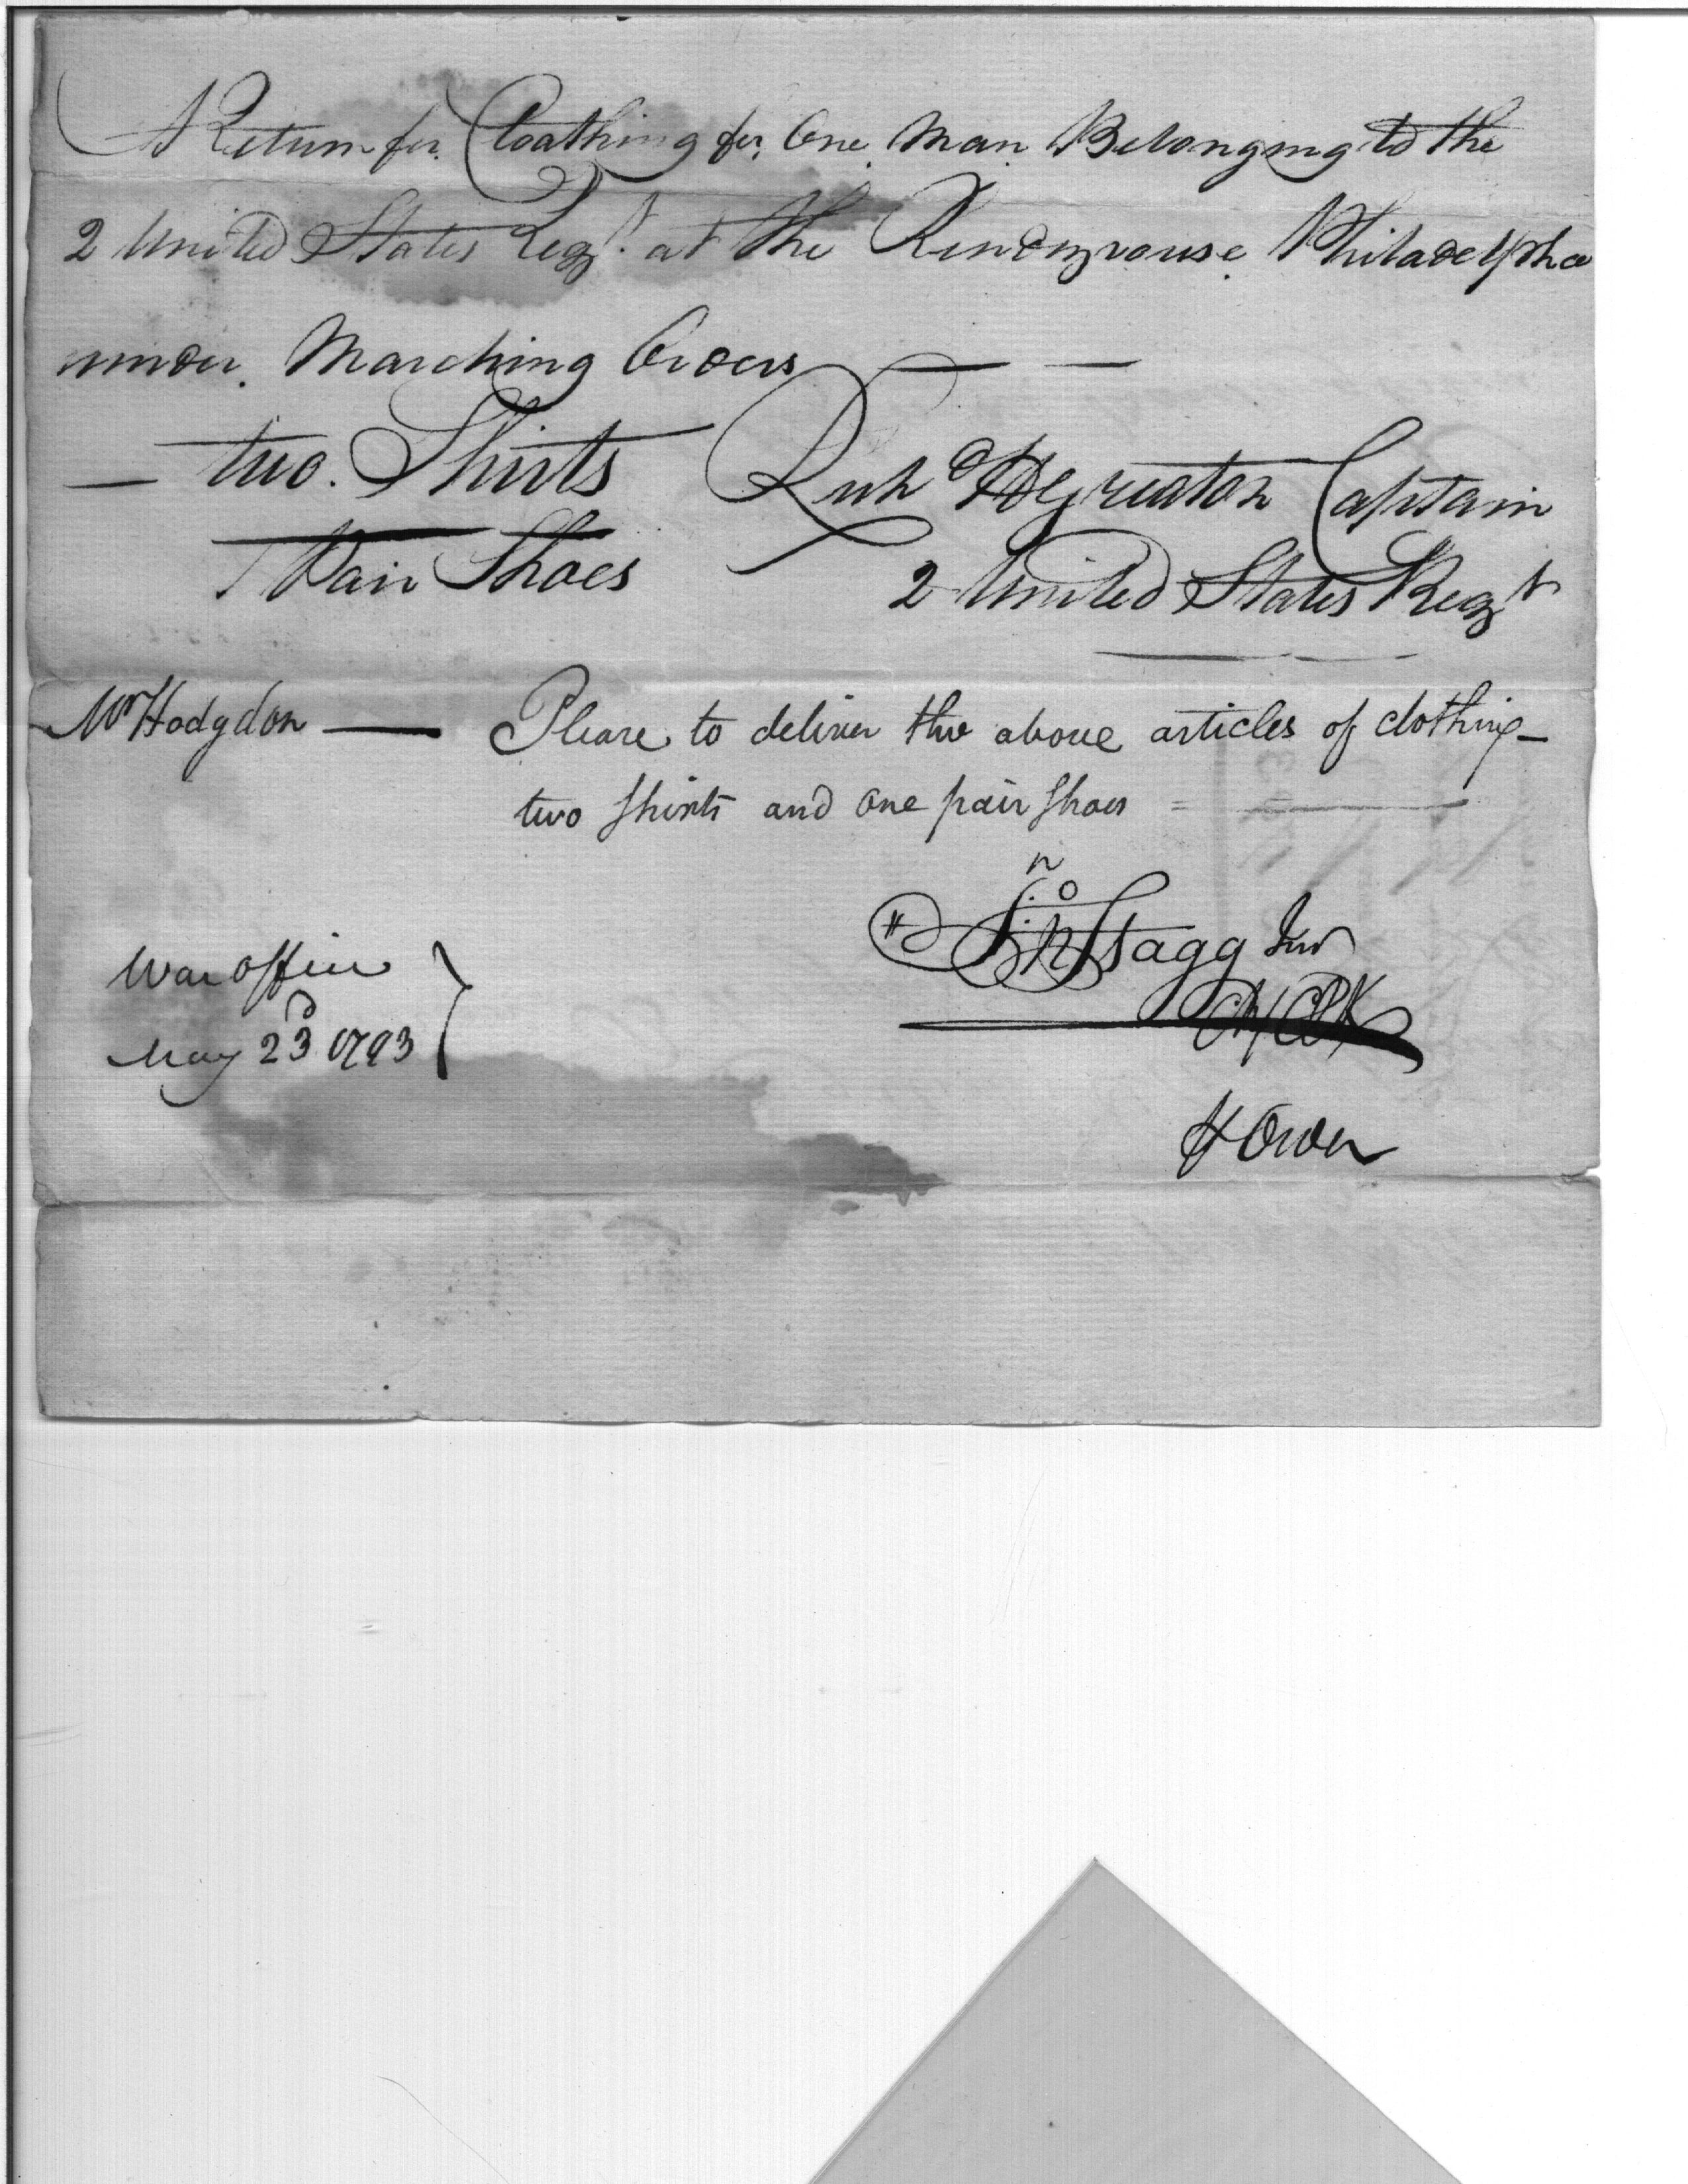 A Return for Cloathing for One Man Belonging to the
2 United States Regt. at the Rendezvouse Philadelphia
under Marching Orders
two Shirts
1 Pair Shoes
Richd H Greaton Captain
2 United States Regt
Mr Hodgdon — Please to deliver the above articles of clothing —
two shirts and one pair shoes =
War office
May 23d 1793
Jno Stagg Junr